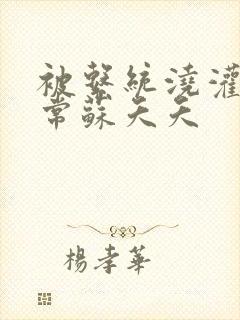 被繫統澆灌
常蘇天天
楊孝華